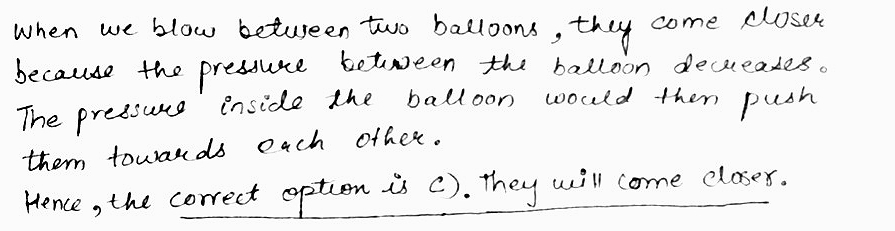 When we blow between two balloons, they come closer
because the pressure between the balloon decreases.
The pressure inside the balloon would then push
them towards each other.
Hence, the correct option is c). They will come closer.